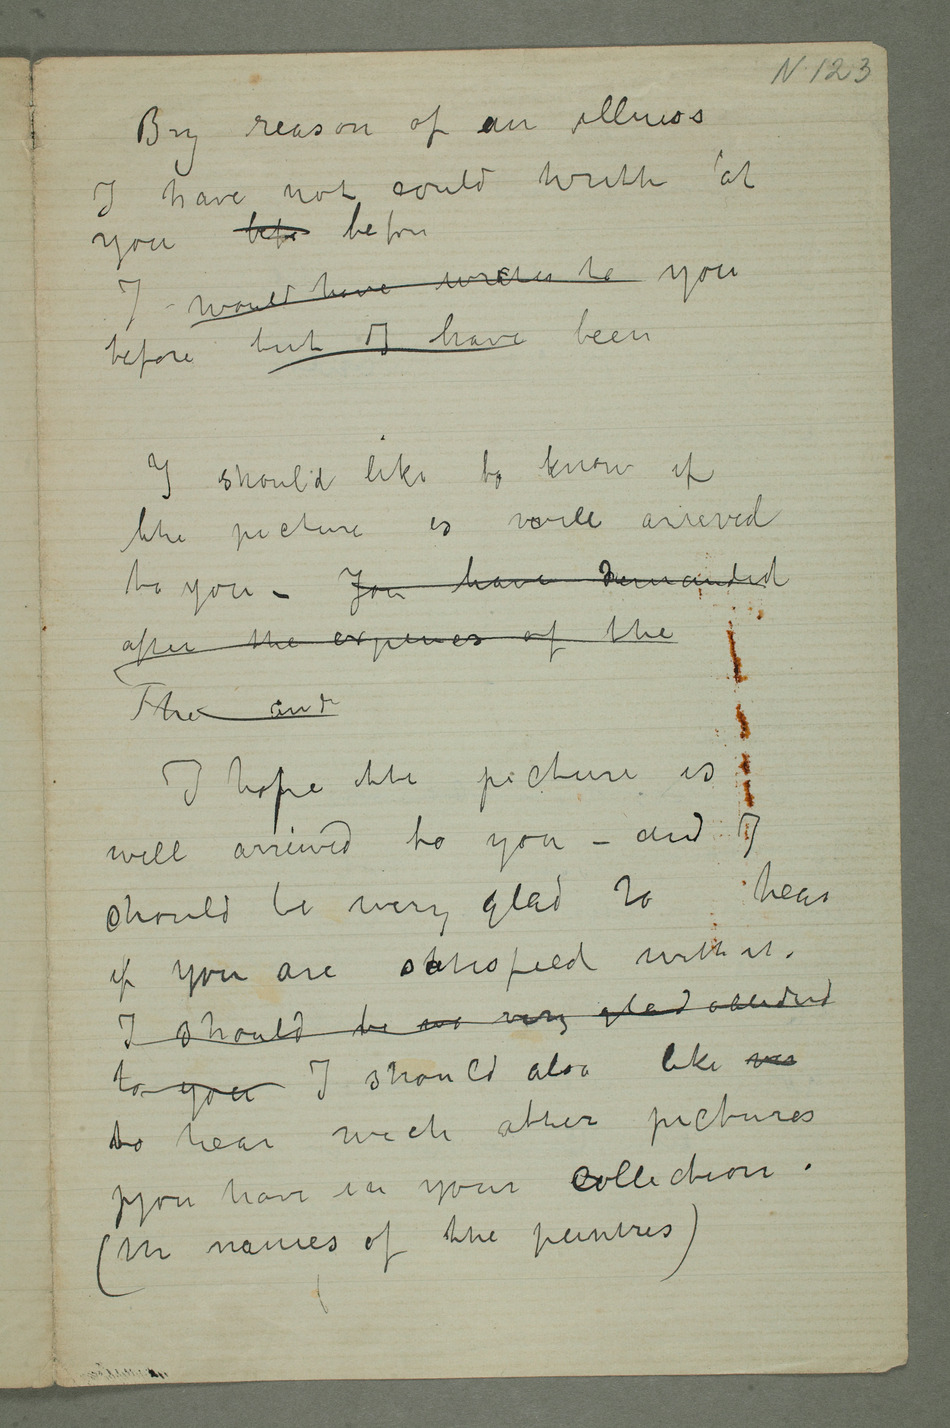 N 123
By reason of an illness
I have not could writh 'at
you befo before
I would have writen to you
before but I have been
I should like to know if
the picture is well arieved
to you – You have demanded
after the expences of the
The and
I hope the picture is
well arrieved to you – and I
should be very glad to hear
if you are satisfied with it.
I should be very glad
to you I should also like
to hear wich other pictures
you have in your collection.
(the names of the peintres)